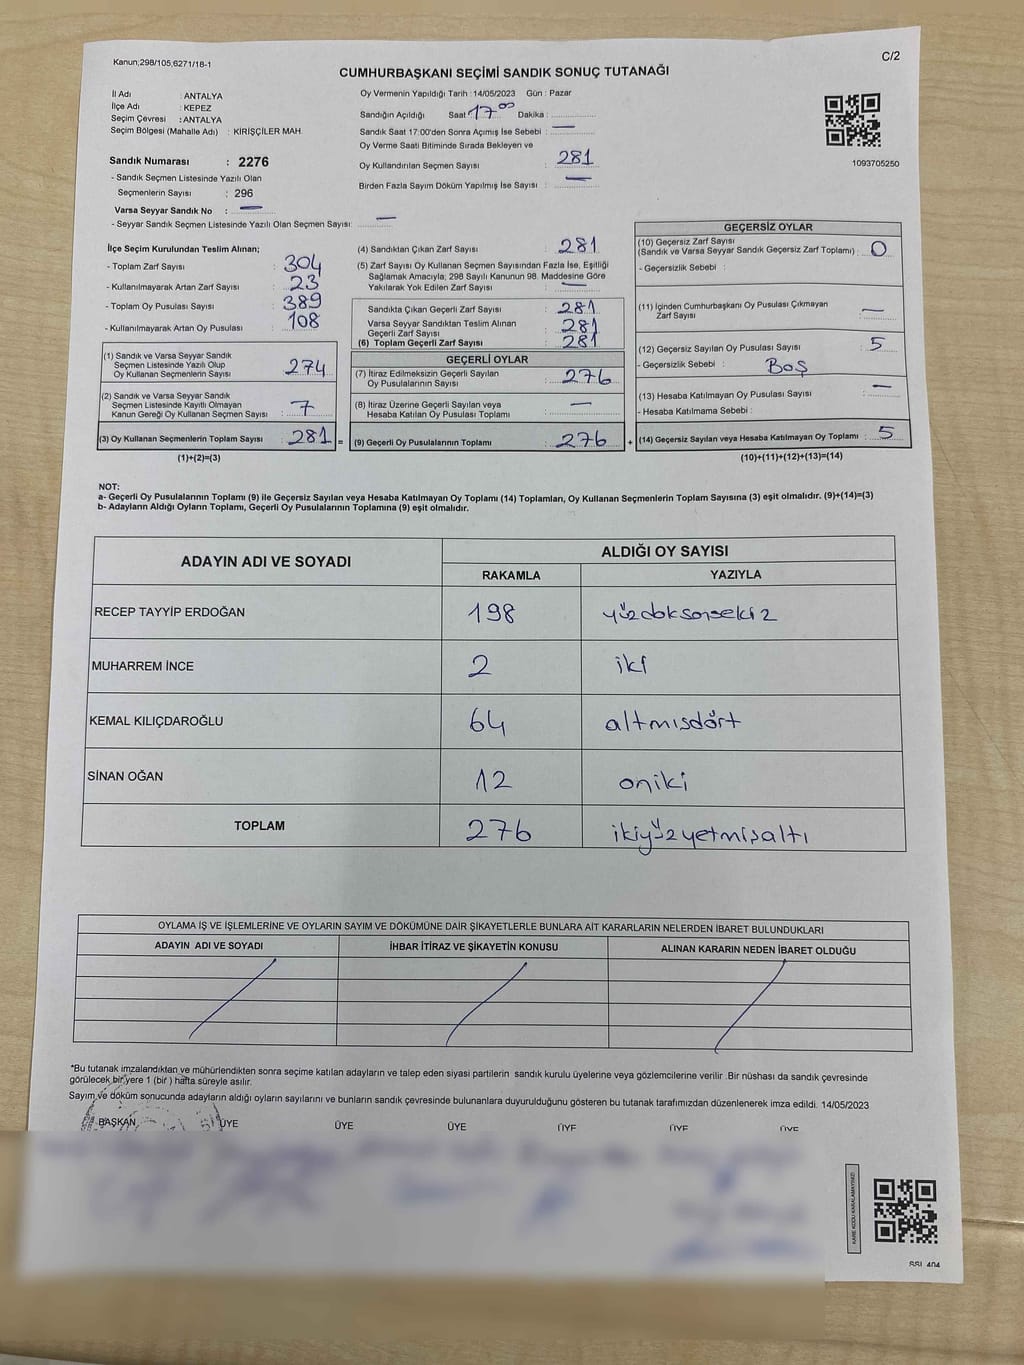 Kanun;298/105,6271/18-1
C/2
CUMHURBAŞKANI SEÇİMİ SANDIK SONUÇ TUTANAĞI
İl Adı : ANTALYA
İlçe Adı : KEPEZ
Seçim Çevresi : ANTALYA
Seçim Bölgesi (Mahalle Adı) : KİRİŞÇİLER MAH.
Sandık Numarası : 2276
- Sandık Seçmen Listesinde Yazılı Olan
Seçmenlerin Sayısı : 296
Varsa Seyyar Sandık No : —
- Seyyar Sandık Seçmen Listesinde Yazılı Olan Seçmen Sayısı: —
Oy Vermenin Yapıldığı Tarih : 14/05/2023 Gün : Pazar
Sandığın Açıldığı Saat 17 00 Dakika :
Sandık Saat 17:00'den Sonra Açımış İse Sebebi : —
Oy Verme Saati Bitiminde Sırada Bekleyen ve
Oy Kullandırılan Seçmen Sayısı : 281
Birden Fazla Sayım Döküm Yapılmış İse Sayısı : —
1093705250
İlçe Seçim Kurulundan Teslim Alınan;
- Toplam Zarf Sayısı : 304
- Kullanılmayarak Artan Zarf Sayısı : 23
- Toplam Oy Pusulası Sayısı : 389
- Kullanılmayarak Artan Oy Pusulası : 108
(1) Sandık ve Varsa Seyyar Sandık
Seçmen Listesinde Yazılı Olup
Oy Kullanan Seçmenlerin Sayısı : 274
(2) Sandık ve Varsa Seyyar Sandık
Seçmen Listesinde Kayıtlı Olmayan
Kanun Gereği Oy Kullanan Seçmen Sayısı : 7
(3) Oy Kullanan Seçmenlerin Toplam Sayısı : 281 =
(1)+(2)=(3)
(4) Sandıktan Çıkan Zarf Sayısı : 281
(5) Zarf Sayısı Oy Kullanan Seçmen Sayısından Fazla İse, Eşitliği
Sağlamak Amacıyla; 298 Sayılı Kanunun 98. Maddesine Göre
Yakılarak Yok Edilen Zarf Sayısı : —
Sandıkta Çıkan Geçerli Zarf Sayısı : 281
Varsa Seyyar Sandıktan Teslim Alınan
Geçerli Zarf Sayısı : 281
(6) Toplam Geçerli Zarf Sayısı : 281
GEÇERLİ OYLAR
(7) İtiraz Edilmeksizin Geçerli Sayılan
Oy Pusulalarının Sayısı : 276
(8) İtiraz Üzerine Geçerli Sayılan veya
Hesaba Katılan Oy Pusulası Toplamı : —
(9) Geçerli Oy Pusulalarının Toplamı : 276 +
GEÇERSİZ OYLAR
(10) Geçersiz Zarf Sayısı
(Sandık ve Varsa Seyyar Sandık Geçersiz Zarf Toplamı) : 0
- Geçersizlik Sebebi :
(11) İçinden Cumhurbaşkanı Oy Pusulası Çıkmayan
Zarf Sayısı : —
(12) Geçersiz Sayılan Oy Pusulası Sayısı : 5
- Geçersizlik Sebebi : BOŞ
(13) Hesaba Katılmayan Oy Pusulası Sayısı : —
- Hesaba Katılmama Sebebi :
(14) Geçersiz Sayılan veya Hesaba Katılmayan Oy Toplamı : 5
(10)+(11)+(12)+(13)=(14)
NOT:
a- Geçerli Oy Pusulalarının Toplamı (9) ile Geçersiz Sayılan veya Hesaba Katılmayan Oy Toplamı (14) Toplamları, Oy Kullanan Seçmenlerin Toplam Sayısına (3) eşit olmalıdır. (9)+(14)=(3)
b- Adayların Aldığı Oyların Toplamı, Geçerli Oy Pusulalarının Toplamına (9) eşit olmalıdır.
ADAYIN ADI VE SOYADI
ALDIĞI OY SAYISI
RAKAMLA YAZIYLA
RECEP TAYYİP ERDOĞAN 198 yüzdoksansekiz
MUHARREM İNCE 2 iki
KEMAL KILIÇDAROĞLU 64 altmışdört
SİNAN OĞAN 12 oniki
TOPLAM 276 ikiyüzyetmişaltı
OYLAMA İŞ VE İŞLEMLERİNE VE OYLARIN SAYIM VE DÖKÜMÜNE DAİR ŞİKAYETLERLE BUNLARA AİT KARARLARIN NELERDEN İBARET BULUNDUKLARI
ADAYIN ADI VE SOYADI İHBAR İTİRAZ VE ŞİKAYETİN KONUSU ALINAN KARARIN NEDEN İBARET OLDUĞU
*Bu tutanak imzalandıktan ve mühürlendikten sonra seçime katılan adayların ve talep eden siyasi partilerin sandık kurulu üyelerine veya gözlemcilerine verilir .Bir nüshası da sandık çevresinde
görülecek bir yere 1 (bir ) hafta süreyle asılır.
Sayım ve döküm sonucunda adayların aldığı oyların sayılarını ve bunların sandık çevresinde bulunanlara duyurulduğunu gösteren bu tutanak tarafımızdan düzenlenerek imza edildi. 14/05/2023
BAŞKAN ÜYE ÜYE ÜYE ÜYE ÜYE ÜYE
KARE KODU KARALAMAYINIZ!